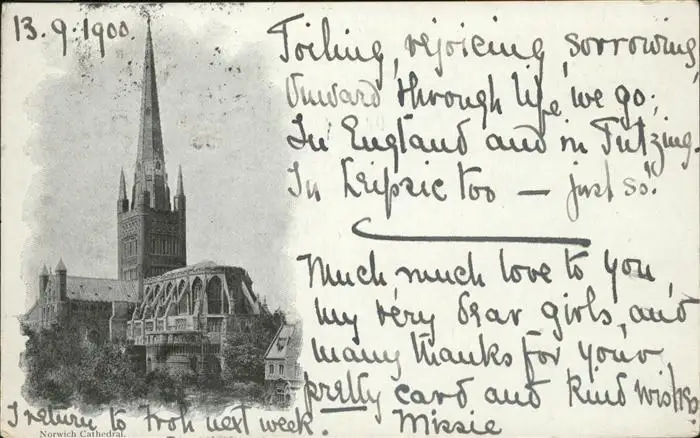 13.9.1900.
Toiling, rejoicing, sorrowing,
Onward through life we go;
In England and in Tutzing.
In Leipsic too — just so."
Much, much love to you,
my very dear girls, and
many thanks for your
pretty card and kind wishes
Missie
I return to Froh next week.
Norwich Cathedral.